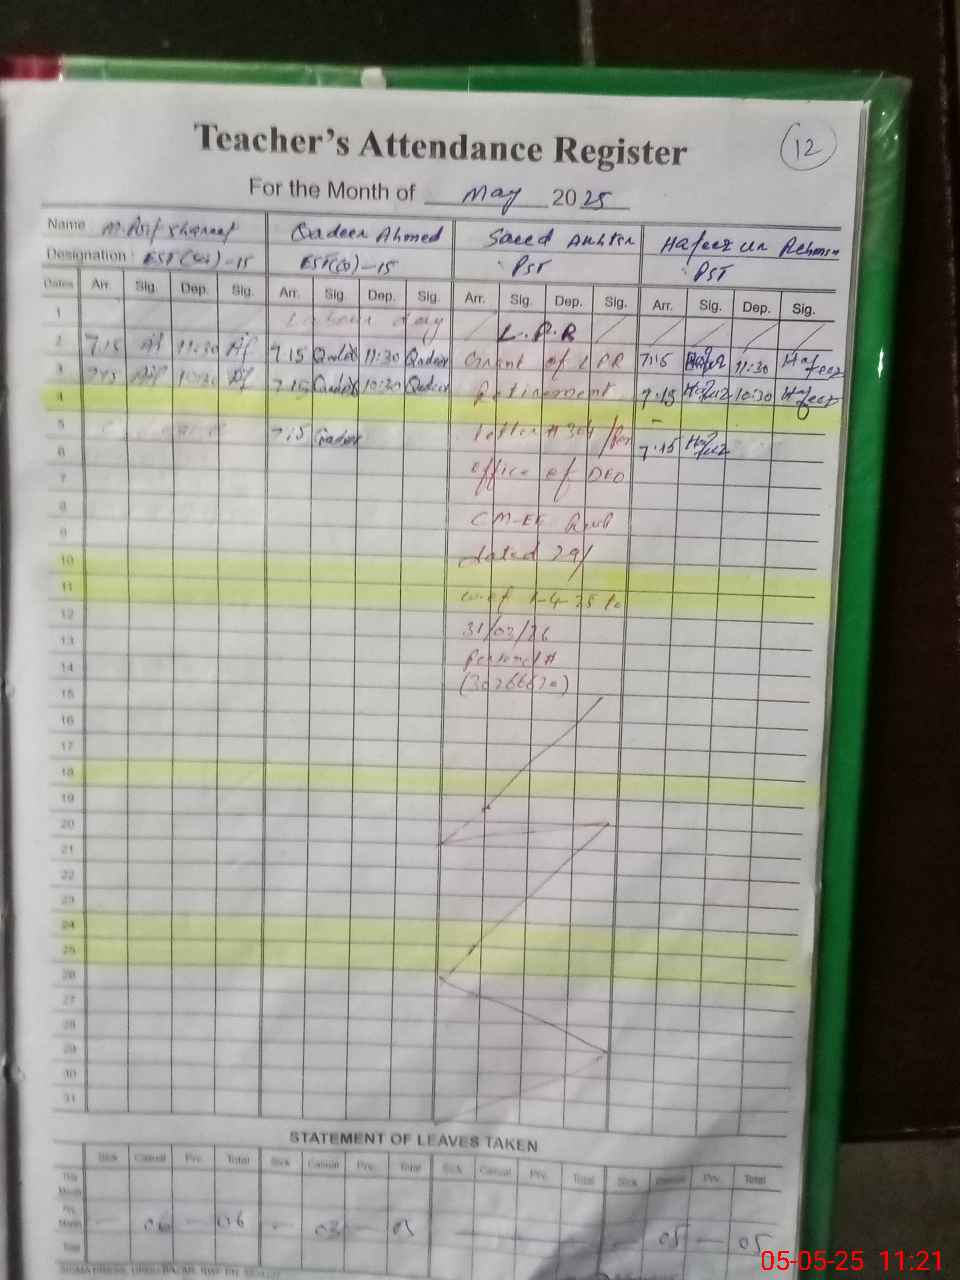 12
Teacher's Attendance Register
For the Month of May 2025
Name M. Asif Shareef Qadeer Ahmed Saeed Akhter Hafeez ur Rehman
Designation : EST( )-15 EST( )-15 PST PST
Dates Arr. Sig. Dep. Sig. Arr. Sig. Dep. Sig. Arr. Sig. Dep. Sig. Arr. Sig. Dep. Sig.
1 Labour day L.P.R
2 7.15 Asif 11:30 Asif 7.15 Qadeer 11:30 Qadeer Grant of LPR 7:15 Hafeez 11:30 Hafeez
3 7:15 Asif 10:30 Asif 7.15 Qadeer 10:30 Qadeer Retirement 7.15 Hafeez 10:30 Hafeez
4
5 7.15 Qadeer letter # 7.15 Hafeez
6 office of DEO
7
8 CM-EE
9 dated 29/
10
11 w.e.f 1-4-25 to
12 31/03/26
13 Personal #
14 (30266620)
15
16
17
18
19
20
21
22
23
24
25
26
27
28
29
30
31
STATEMENT OF LEAVES TAKEN
Sick Casual Prv. Total Sick Casual Prv. Total Sick Casual Prv. Total Sick Casual Prv. Total
This Month
Prv. Month — 06 — 06 - 03 - 03 05 — 05
Total
05-05-25 11:21